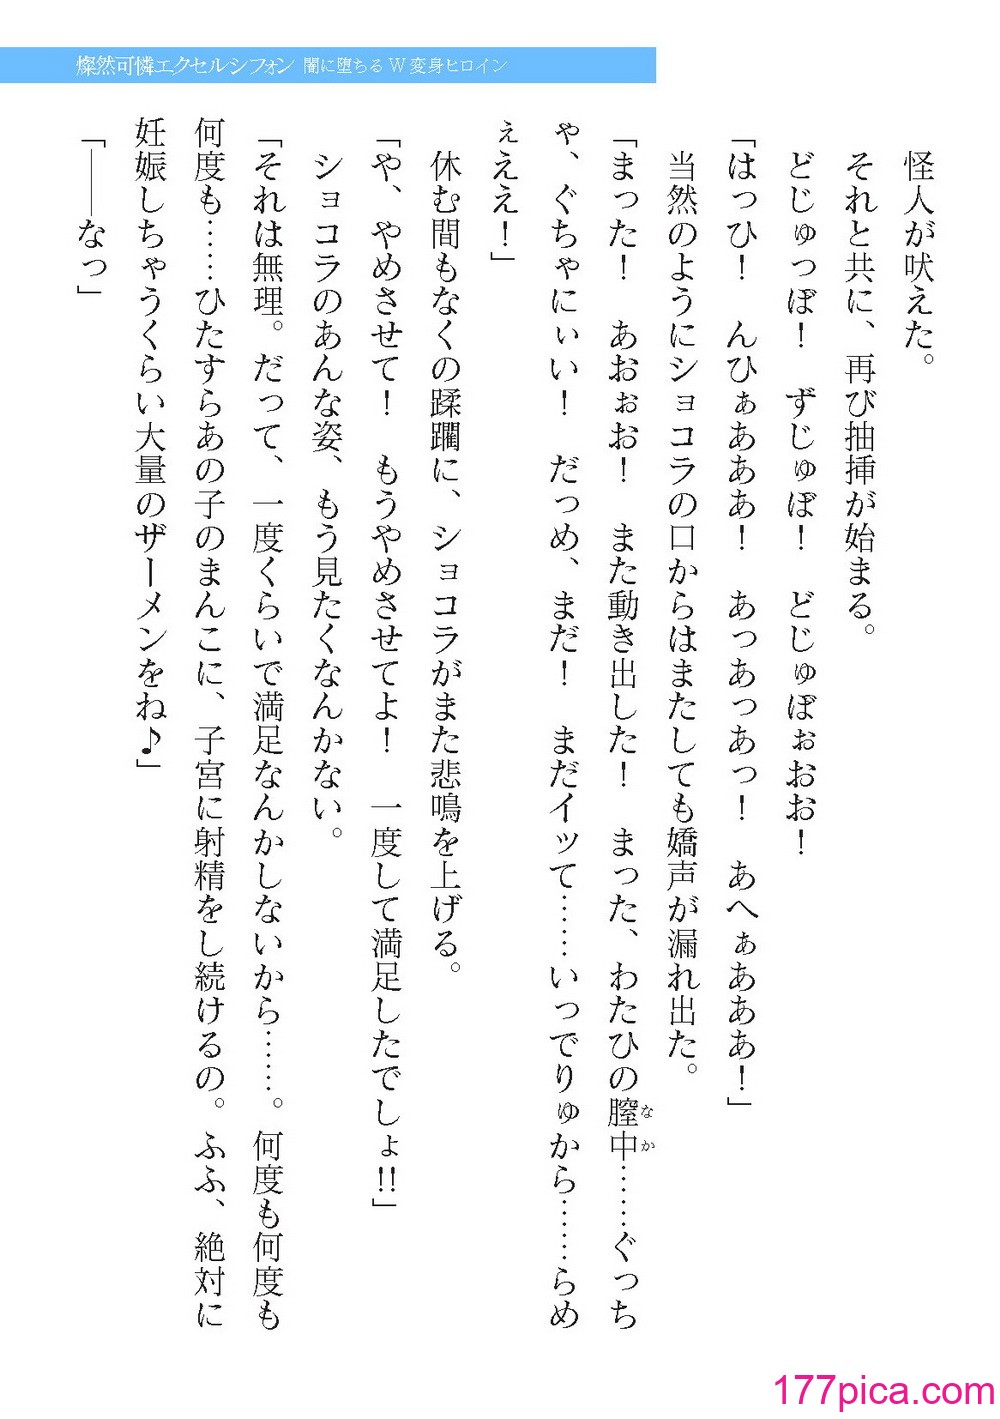 燦然可憐エクセルシフォン 闇に堕ちるW変身ヒロイン
怪人が吠えた。
それと共に、再び抽挿が始まる。
どじゅっぽ！　ずじゅぽ！　どじゅぽぉおお！
「はっひ！　んひぁあああ！　あっあっあっあっ！　あへぁあああ！」
当然のようにショコラの口からはまたしても嬌声が漏れ出た。
「まった！　あおぉお！　また動き出した！　まった、わたひの膣中なか……ぐっち
ゃ、ぐちゃにぃい！　だっめ、まだ！　まだイッて……いっでりゅから……らめ
ぇええ！」
休む間もなくの蹂躙に、ショコラがまた悲鳴を上げる。
「や、やめさせて！　もうやめさせてよ！　一度して満足したでしょ!!」
ショコラのあんな姿、もう見たくなんかない。
「それは無理。だって、一度くらいで満足なんかしないから……。何度も何度も
何度も……ひたすらあの子のまんこに、子宮に射精をし続けるの。ふふ、絶対に
妊娠しちゃうくらい大量のザーメンをね♪」
「――なっ」
177pica.com